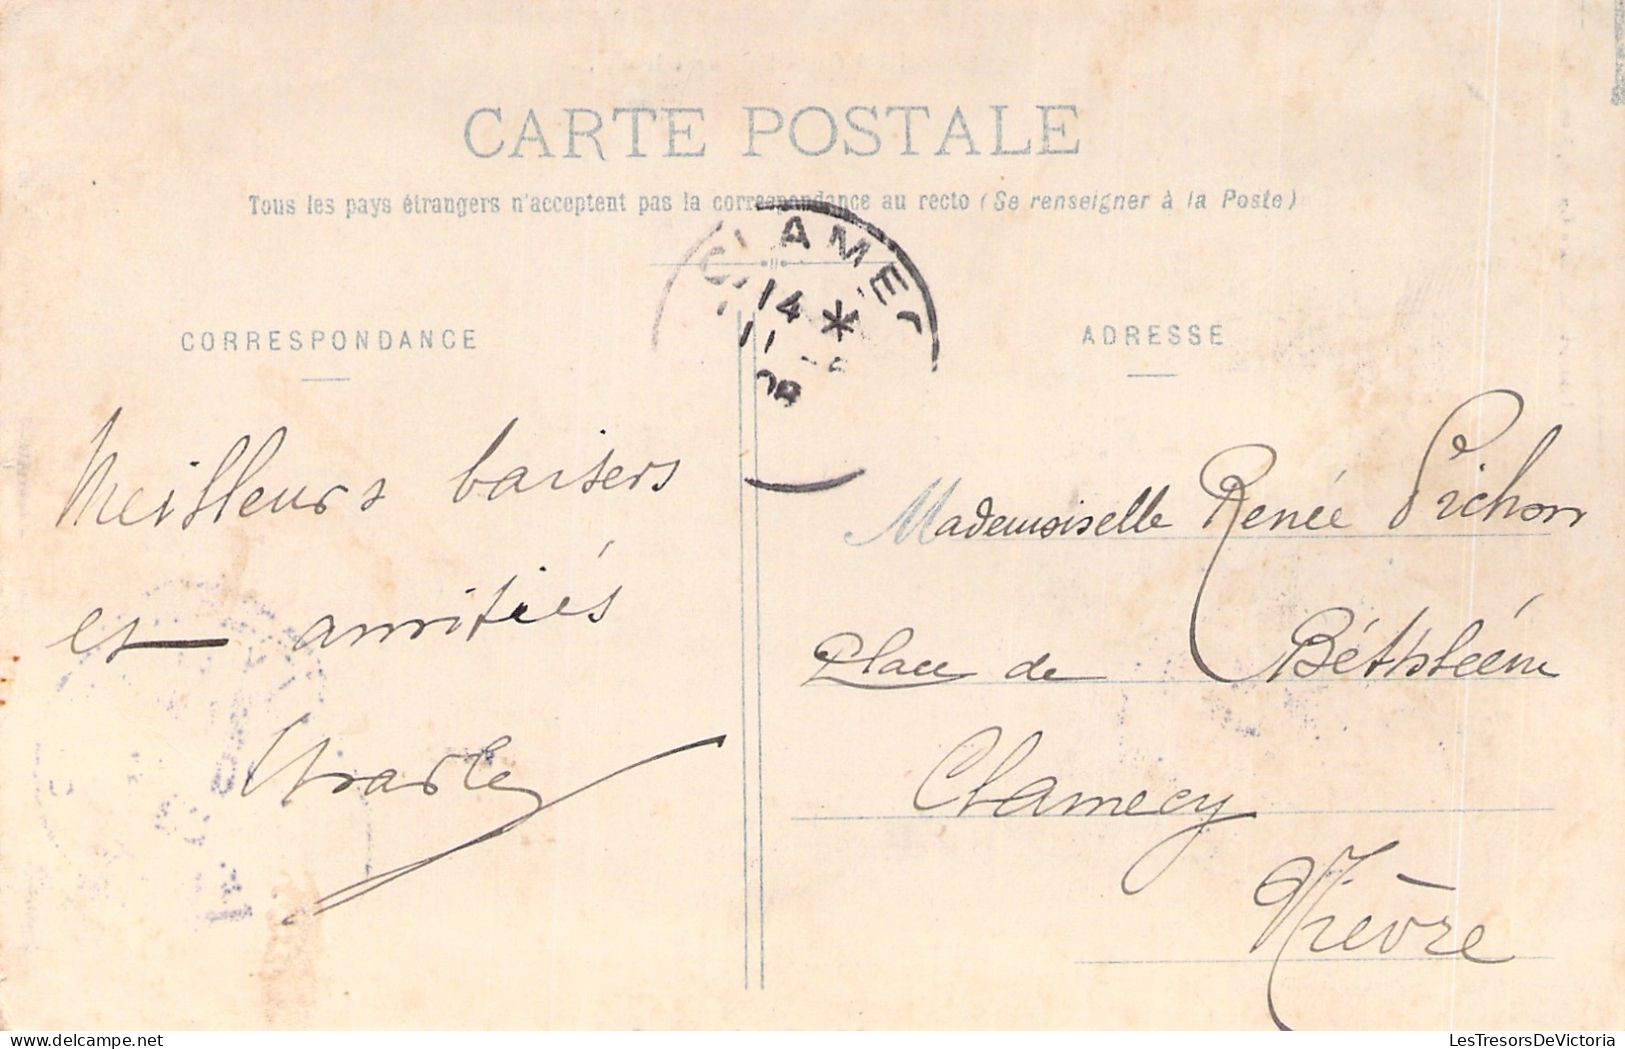 CARTE POSTALE
Tous les pays étrangers n'acceptent pas la correspondance au recto (Se renseigner à la Poste)
CLAMEC
14 *
11
08
CORRESPONDANCE
ADRESSE
Meilleurs baisers
et amitiés
Mademoiselle Renée Pichon
Place de Béthléem
Clamecy
Nièvre
LesTresorsDeVictoria